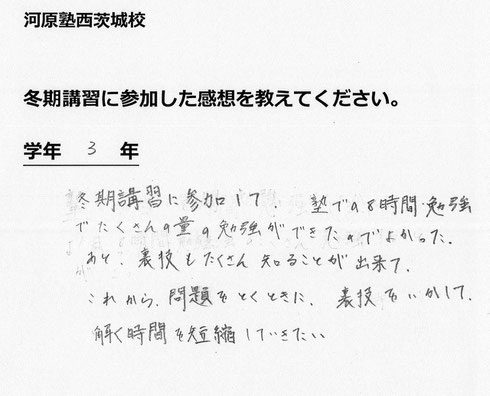 河原塾西茨城校
冬期講習に参加した感想を教えてください。
学年 3 年
冬期講習に参加して 塾での8時間勉強
でたくさんの量の勉強ができたのでよかった。
あと、裏技もたくさん知ることが出来て、
これから、問題をとくときに、裏技をいかして、
解く時間を短縮していきたい